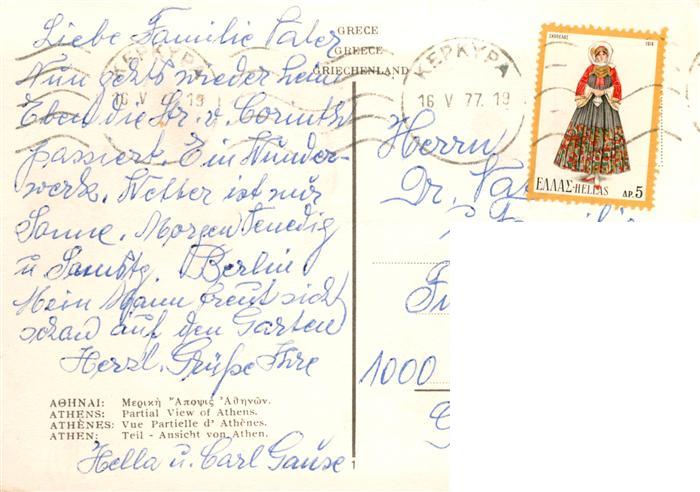 Liebe Familie Pater
Nun geht's wieder heim
Eben die Str. v. Corinth
passiert. Ein Wunder-
werk. Wetter ist nur
Sonne. Morgen Venedig
u Sambtg. Berlin
Mein Mann freut sich
schon auf den Garten
Herzl. Grüße Ihre
Hella u. Carl Gause
GRECE
GREECE
GRIECHENLAND
ΚΕΡΚΥΡΑ
16 V 77. 19
ΚΕΡΚΥΡΑ
16 V 77. 19
ΣΚΟΠΕΛΟΣ 1974
ΕΛΛΑΣ-HELLAS ΔΡ. 5
Herrn
Dr.
1000
ΑΘΗΝΑΙ: Μερικὴ Ἄποψις Ἀθηνῶν.
ATHENS: Partial View of Athens.
ATHÈNES: Vue Partielle d' Athènes.
ATHEN: Teil - Ansicht von Athen.
1